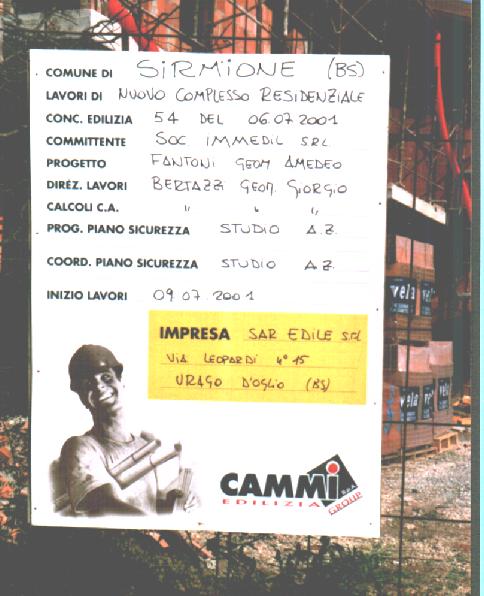 COMUNE DI SIRMIONE (BS)
LAVORI DI NUOVO COMPLESSO RESIDENZIALE
CONC. EDILIZIA 54 DEL 06.07.2001
COMMITTENTE SOC. IMMEDIL SRL
PROGETTO FANTONI GEOM AMEDEO
DIREZ. LAVORI BERTAZZI GEOM. GIORGIO
CALCOLI C.A. " " "
PROG. PIANO SICUREZZA STUDIO A.Z.
COORD. PIANO SICUREZZA STUDIO A.Z.
INIZIO LAVORI 09.07.2001
IMPRESA SAR EDILE Srl
VIA LEOPARDI N° 15
URAGO D'OGLIO (BS)
CAMMi S.P.A.
EDILIZIA GROUP
vela
vela
vela